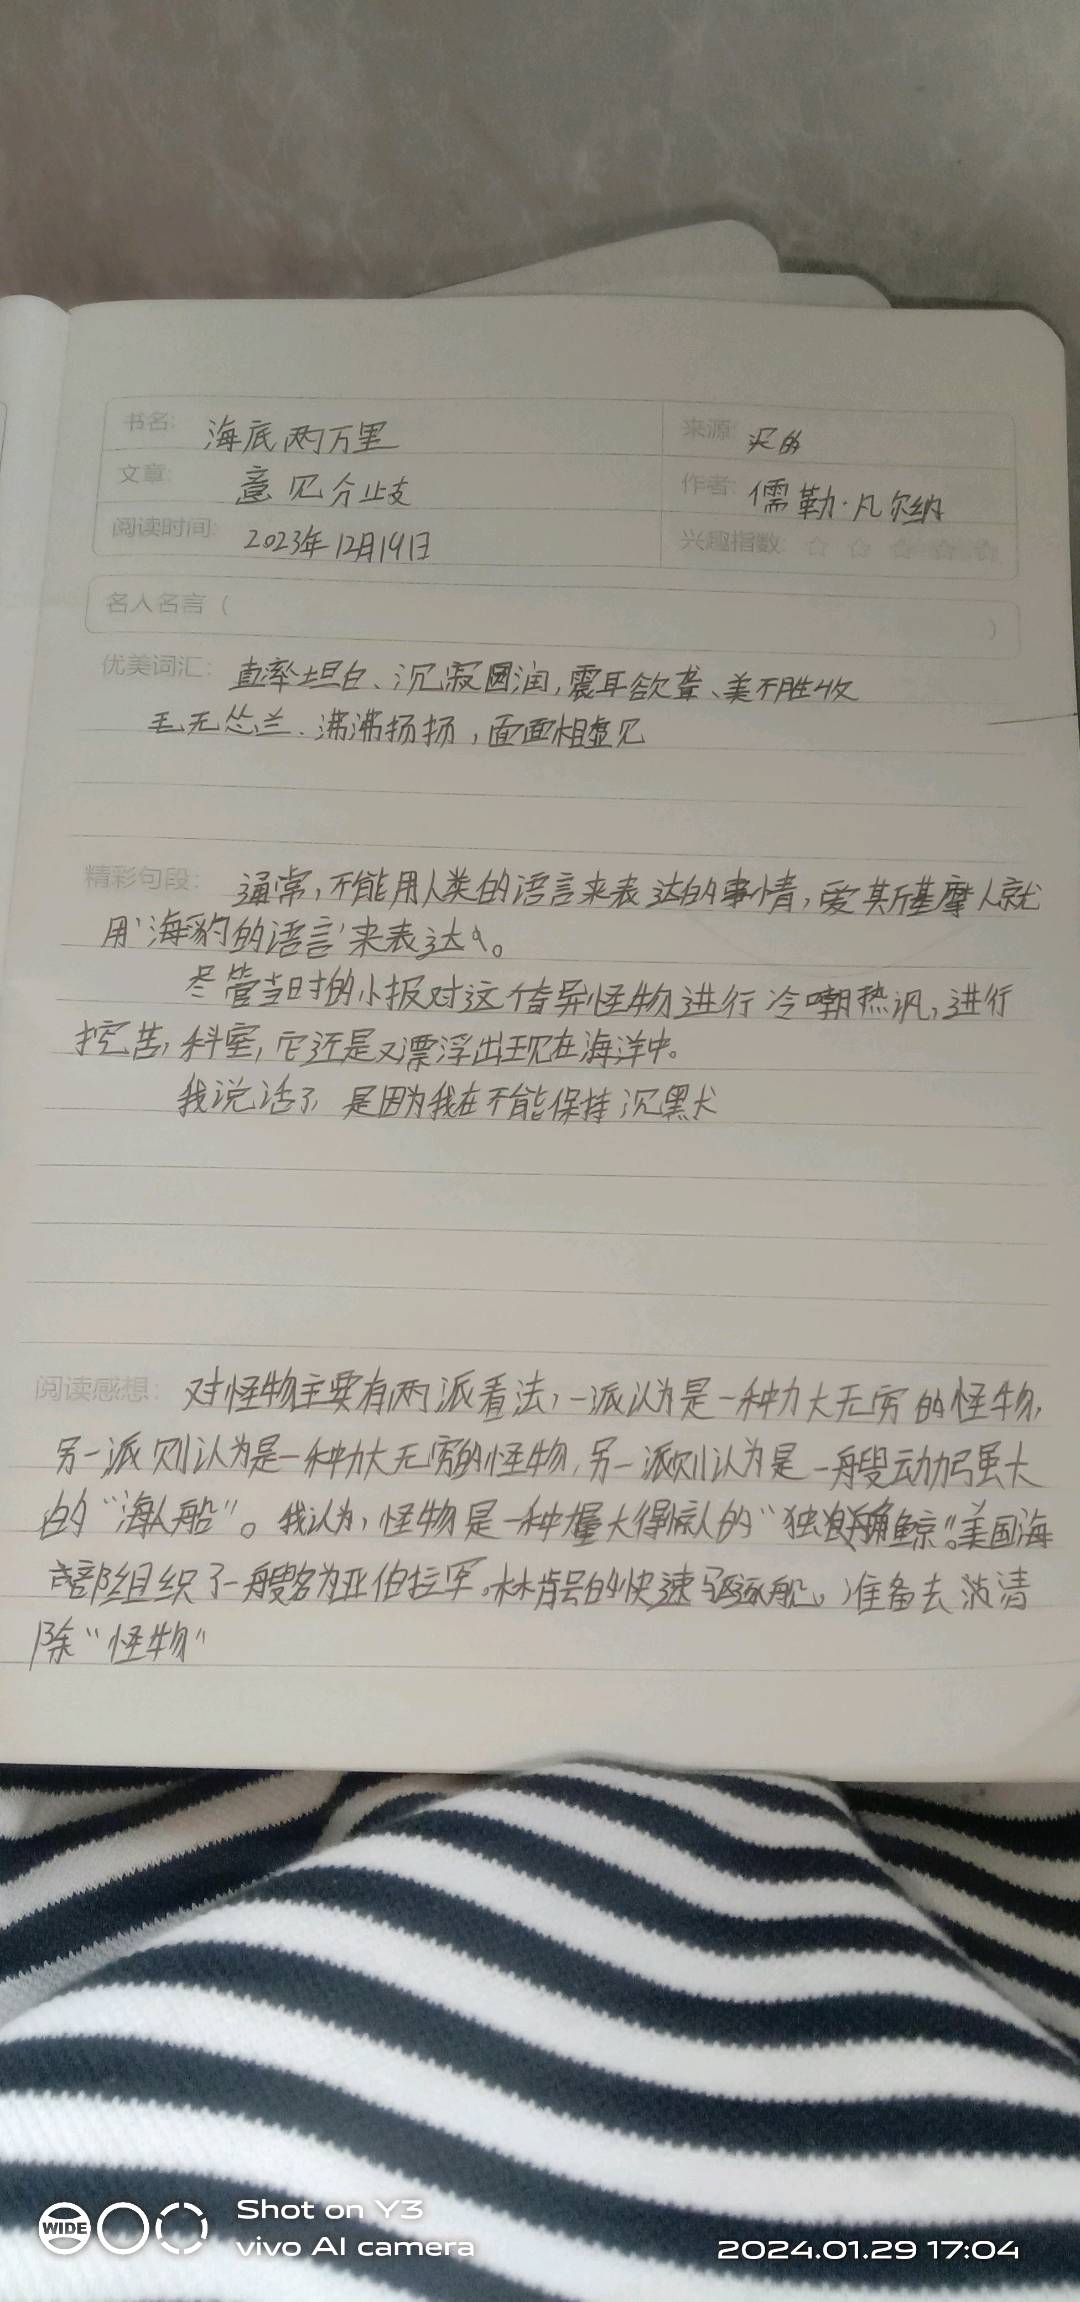 书名: 海底两万里 来源: 买的
文章: 意见分歧 作者: 儒勒·凡尔纳
阅读时间: 2023年12月19日 兴趣指数: ☆ ☆ ☆ ☆ ☆
名人名言 ( )
优美词汇: 直率坦白、沉寂圆润,震耳欲聋、美不胜收
毛无怂兰、沸沸扬扬,面面相虚见
精彩句段: 通常,不能用人类的语言来表达的事情,爱斯基摩人就
用'海豹的语言'来表达。
尽管当时的小报对这个奇异怪物进行冷嘲热讽,进行
挖苦,科室,它还是又漂浮出现在海洋中。
我说话了,是因为我在不能保持沉默
阅读感想: 对怪物主要有两派看法,一派认为是一种力大无穷的怪物,
另一派则认为是一种力大无穷的怪物,另一派则认为是一艘动力强大
的“海人船”。我认为,怪物是一种力量大得惊人的“独角鲸”。美国海
部组织了一艘名为亚伯拉罕·林肯号的快速驱逐舰。准备去 清
除“怪物”
WIDE
Shot on Y3
vivo AI camera
2024.01.29 17:04